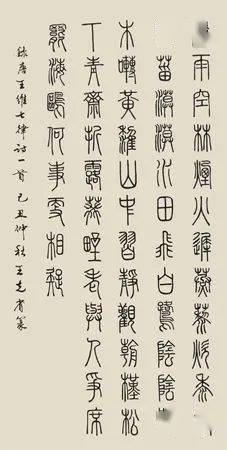 雨空林煙火遲蒸藜炊黍
菑漠漠水田飛白鷺陰陰
木囀黃鸝山中習靜觀朝槿松
下青齋折露葵野老與人爭席
罷海鷗何事更相疑
錄唐王維七律詩一首 己丑仲秋 王克省篆